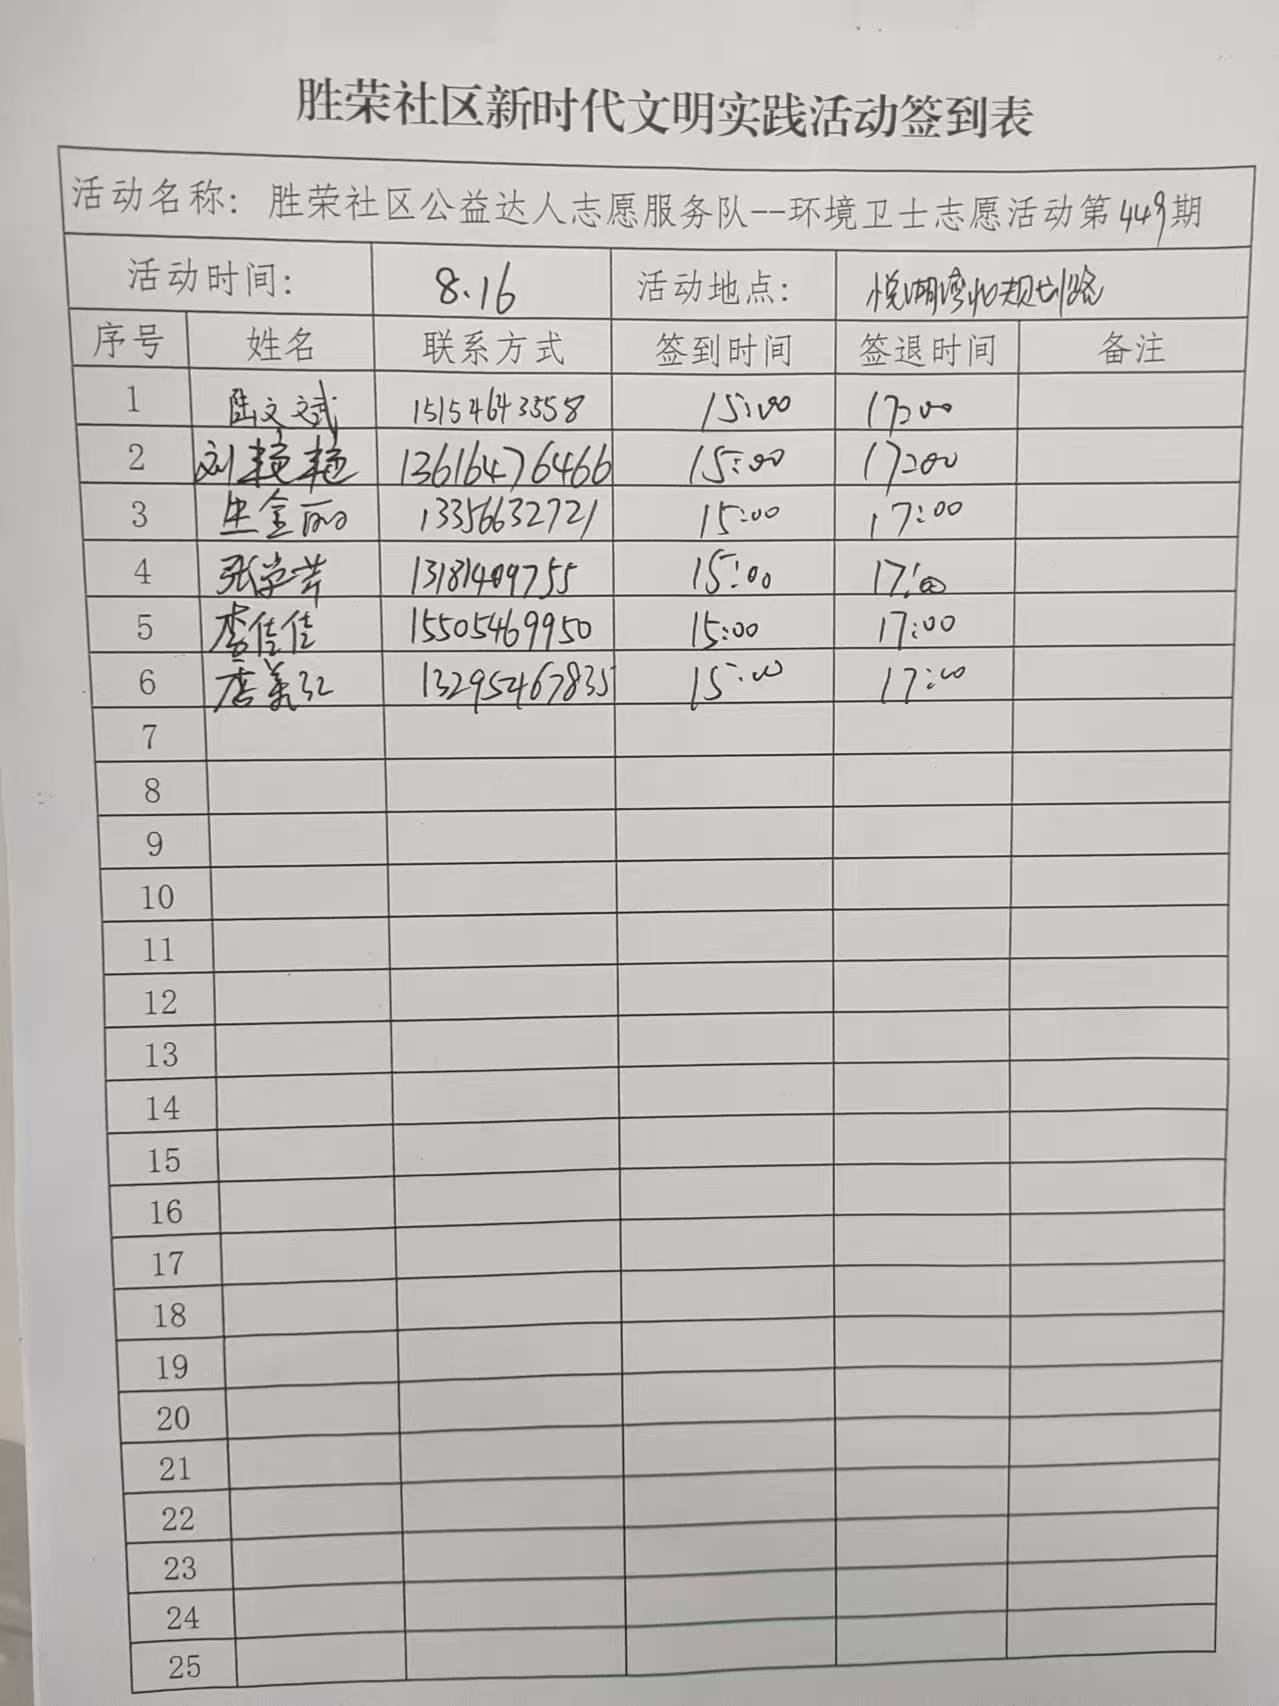 胜荣社区新时代文明实践活动签到表
活动名称：胜荣社区公益达人志愿服务队--环境卫士志愿活动第449期
活动时间： 8.16 活动地点： 悦湖湾北规划路
序号 姓名 联系方式 签到时间 签退时间 备注
1 陆文斌 15154643558 15:00 17:00
2 刘艳艳 13616476466 15:00 17:00
3 生金丽 13356632721 15:00 17:00
4 张 13181409755 15:00 17:00
5 李佳佳 15505469950 15:00 17:00
6 唐美红 13295467835 15:00 17:00
7
8
9
10
11
12
13
14
15
16
17
18
19
20
21
22
23
24
25